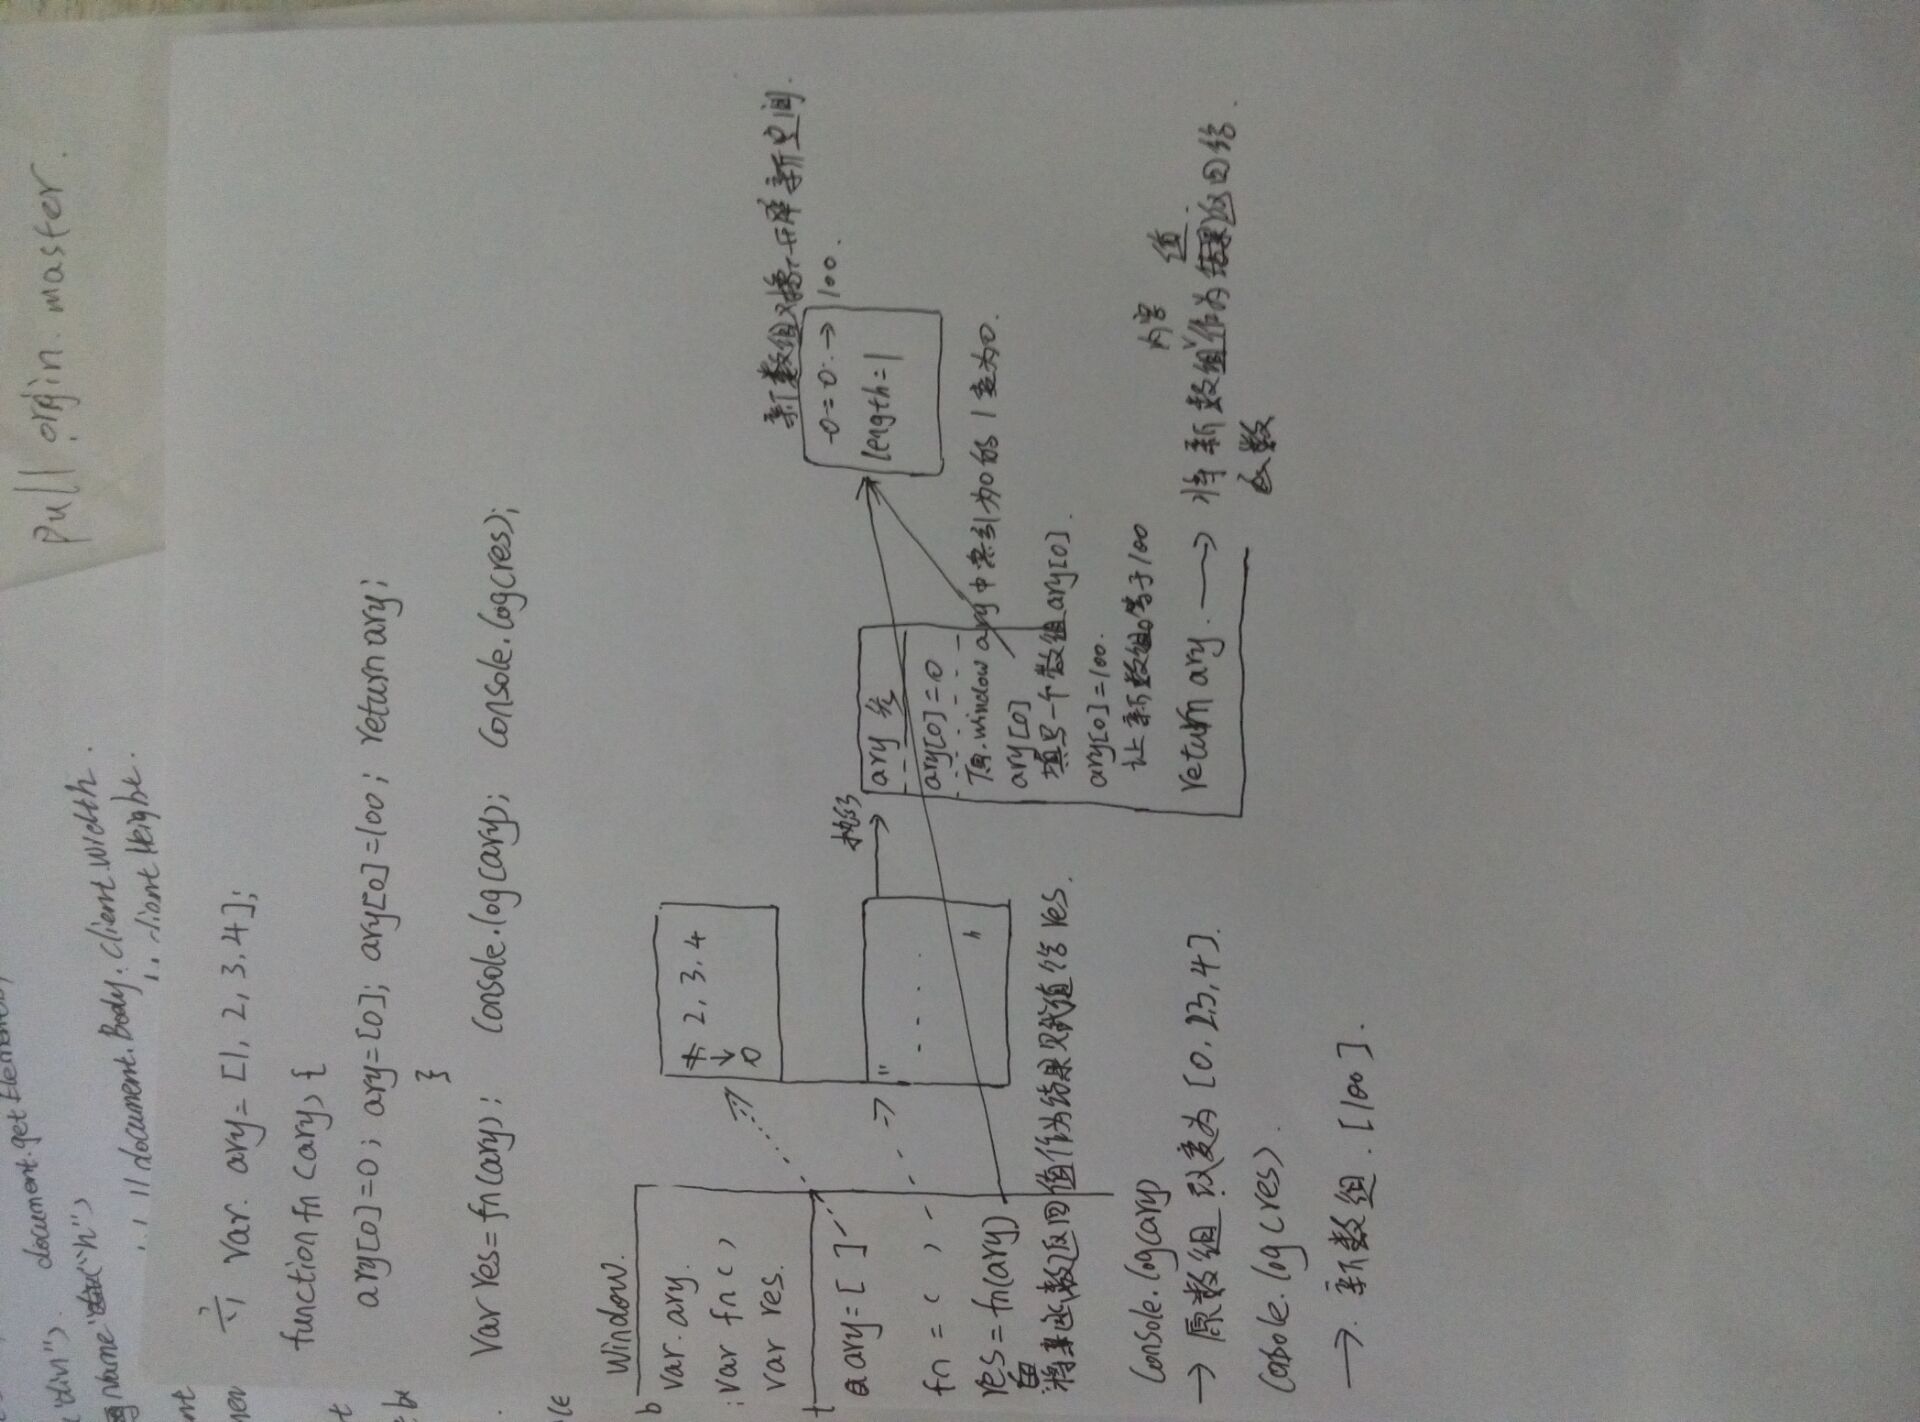 pull orgin. master.
document.getElement
"div")
name
"h")
,, //document.Body.client.Width.
,, client Height.
六 var. ary=[1, 2, 3, 4];
function fn (ary) {
ary[0]=0; ary=[0]; ary[0]=100; return ary;
}
Var res=fn(ary); Console.log(ary); Console.log(res);
Window.
var. ary.
var fn ( )
var res.
ary=[ ]
fn = ( )
res=fn(ary)
函数返回值作为结果赋值给res.
1, 2, 3, 4
↓
0
" . . . . "
执行
ary
ary[0]=0
window ary中索引为0的1变为0.
ary[0]
填另一个数组ary[0].
ary[0]=100.
让新数组等于100
return ary. → 将新数组内容作为值返回给
函数
新数组 开辟新空间.
0=0. → 100.
length=1
Console.log(ary)
→ 原数组 改变为 [0, 2,3, 4].
Console.log(res)
→ 新数组. [100].